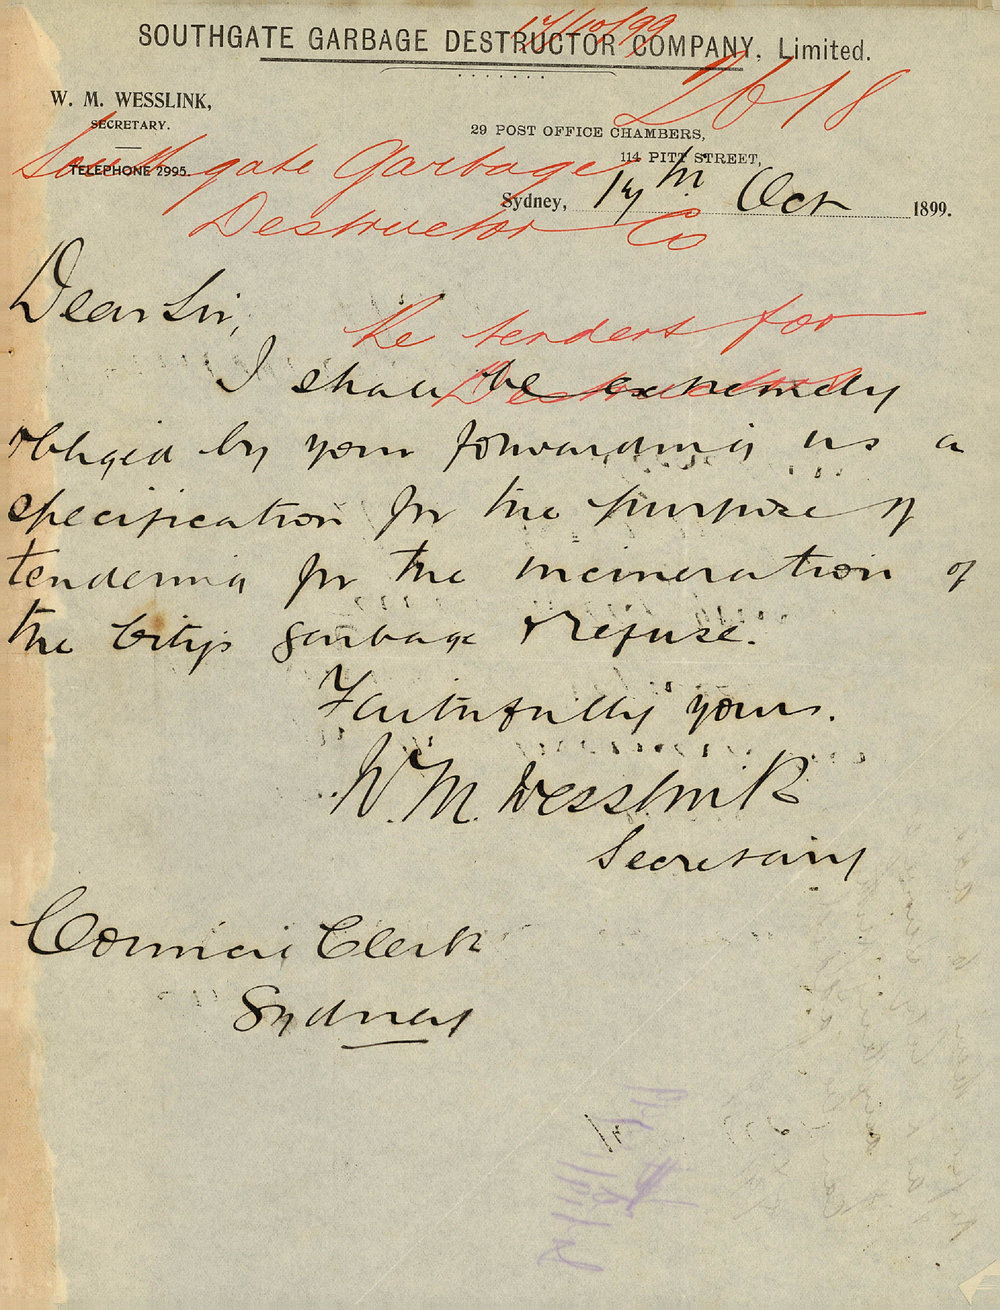 17/10/99
SOUTHGATE GARBAGE DESTRUCTOR COMPANY, Limited.
2618
W. M. WESSLINK,
SECRETARY.
TELEPHONE 2995.
29 POST OFFICE CHAMBERS,
114 PITT STREET,
Sydney, 17th Oct 1899.
Southgate Garbage
Destructor Co
Re tenders for
Destructors
Dear Sir,
I shall be extremely
obliged by your forwarding us a
specification for the purpose of
tendering for the incineration of
the City's garbage & refuse.
Faithfully yours.
W. M. Wesslink
Secretary
Council Clerk
Sydney